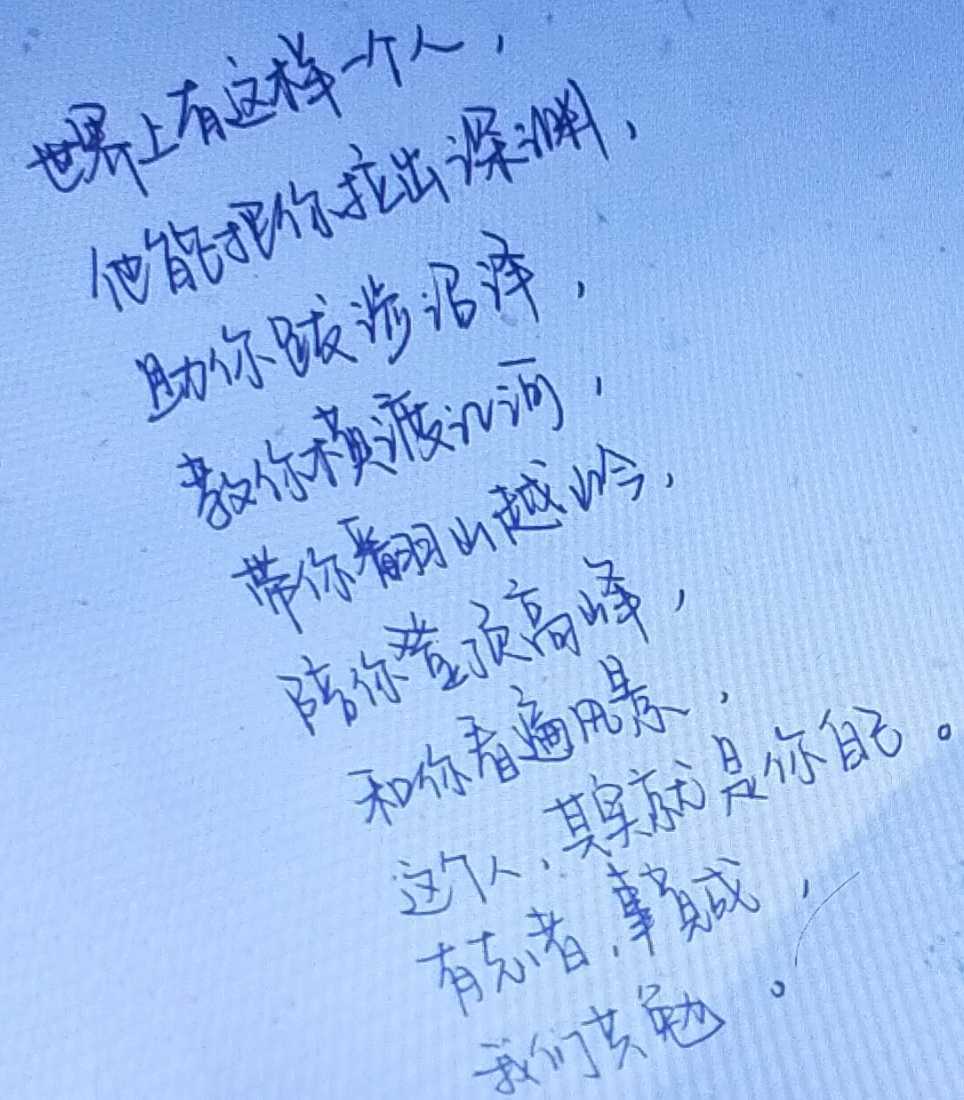 世界上有这样一个人，
他能把你拉出深渊，
助你跋涉沼泽，
教你横渡江河，
带你翻山越岭，
陪你登顶高峰，
和你看遍风景，
这个人，其实就是你自己。
有志者，事竟成，
我们共勉。